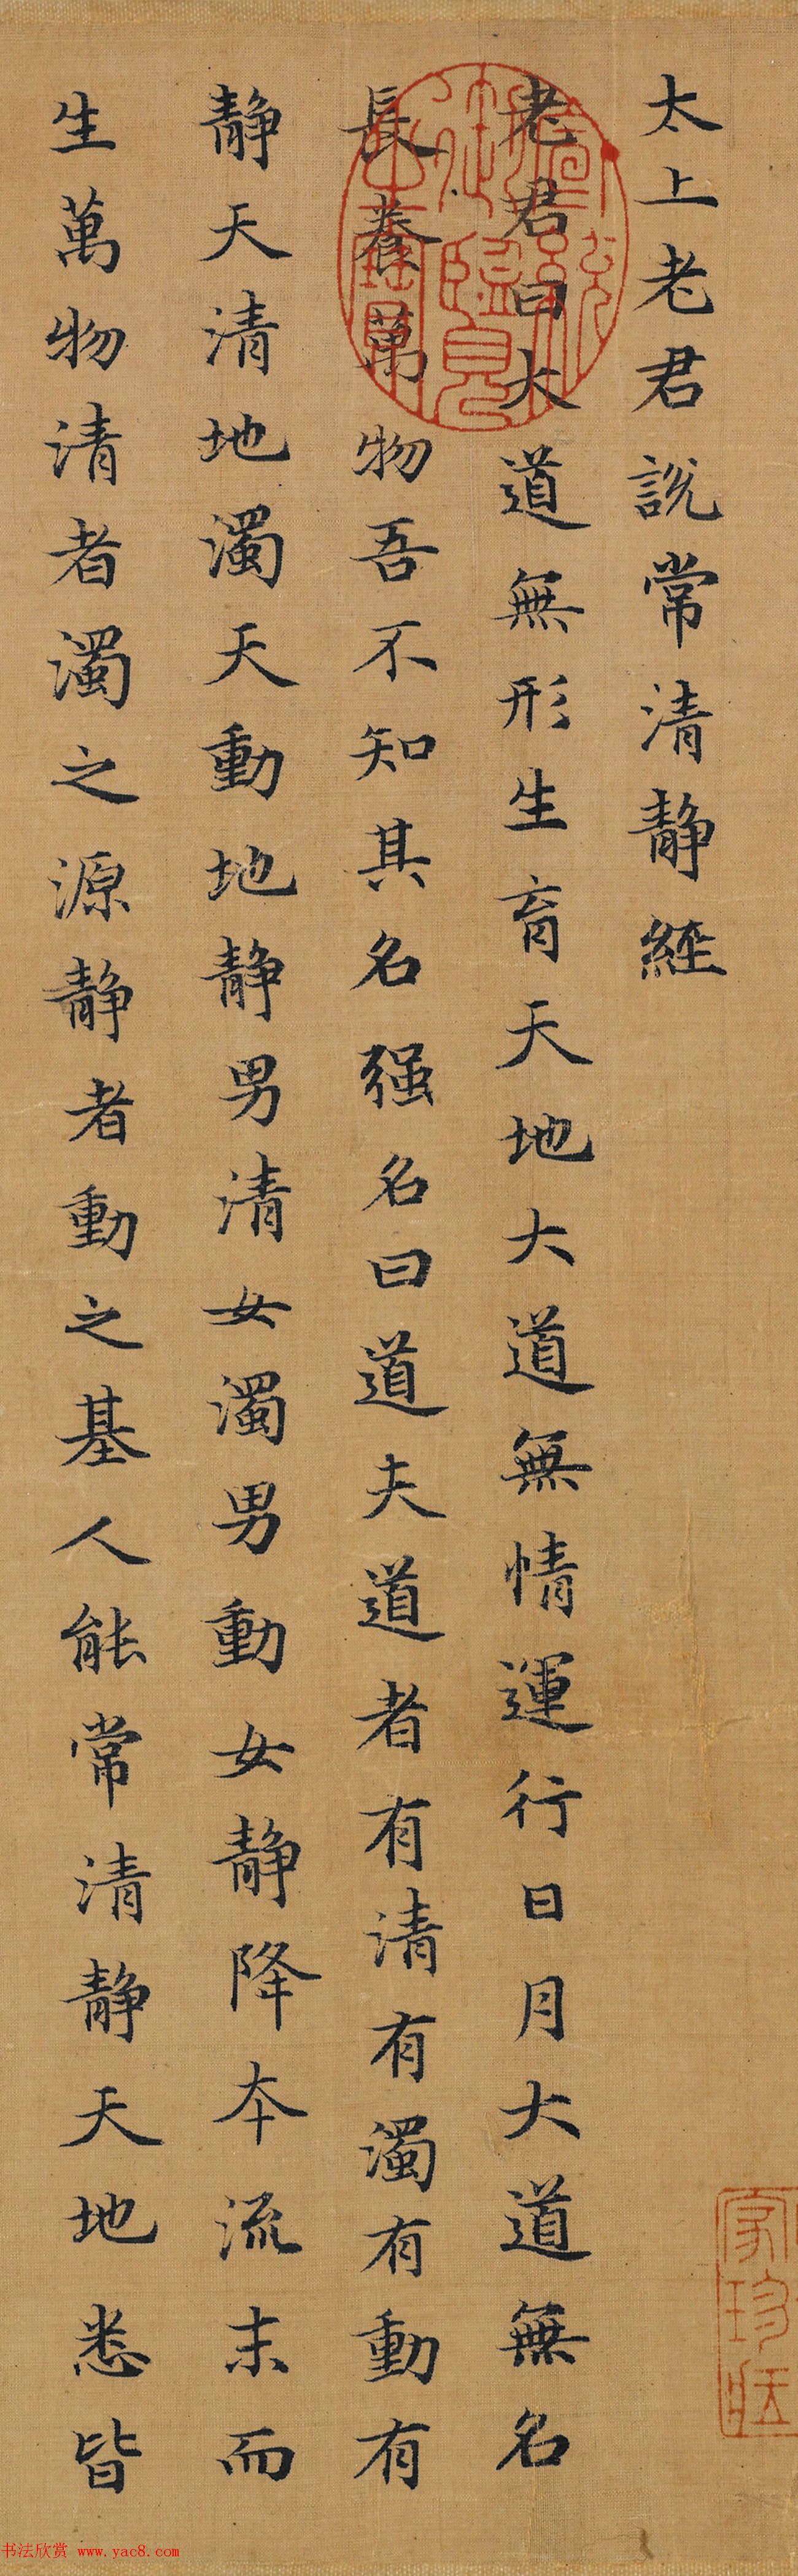 太上老君説常清静經
老君曰大道無形生育天地大道無情運行日月大道無名
長養萬物吾不知其名强名曰道夫道者有清有濁有動有
静天清地濁天動地静男清女濁男動女静降本流末而
生萬物清者濁之源静者動之基人能常清静天地悉皆
宣統御覽之寶
家珍賞
书法欣赏 www.yac8.com